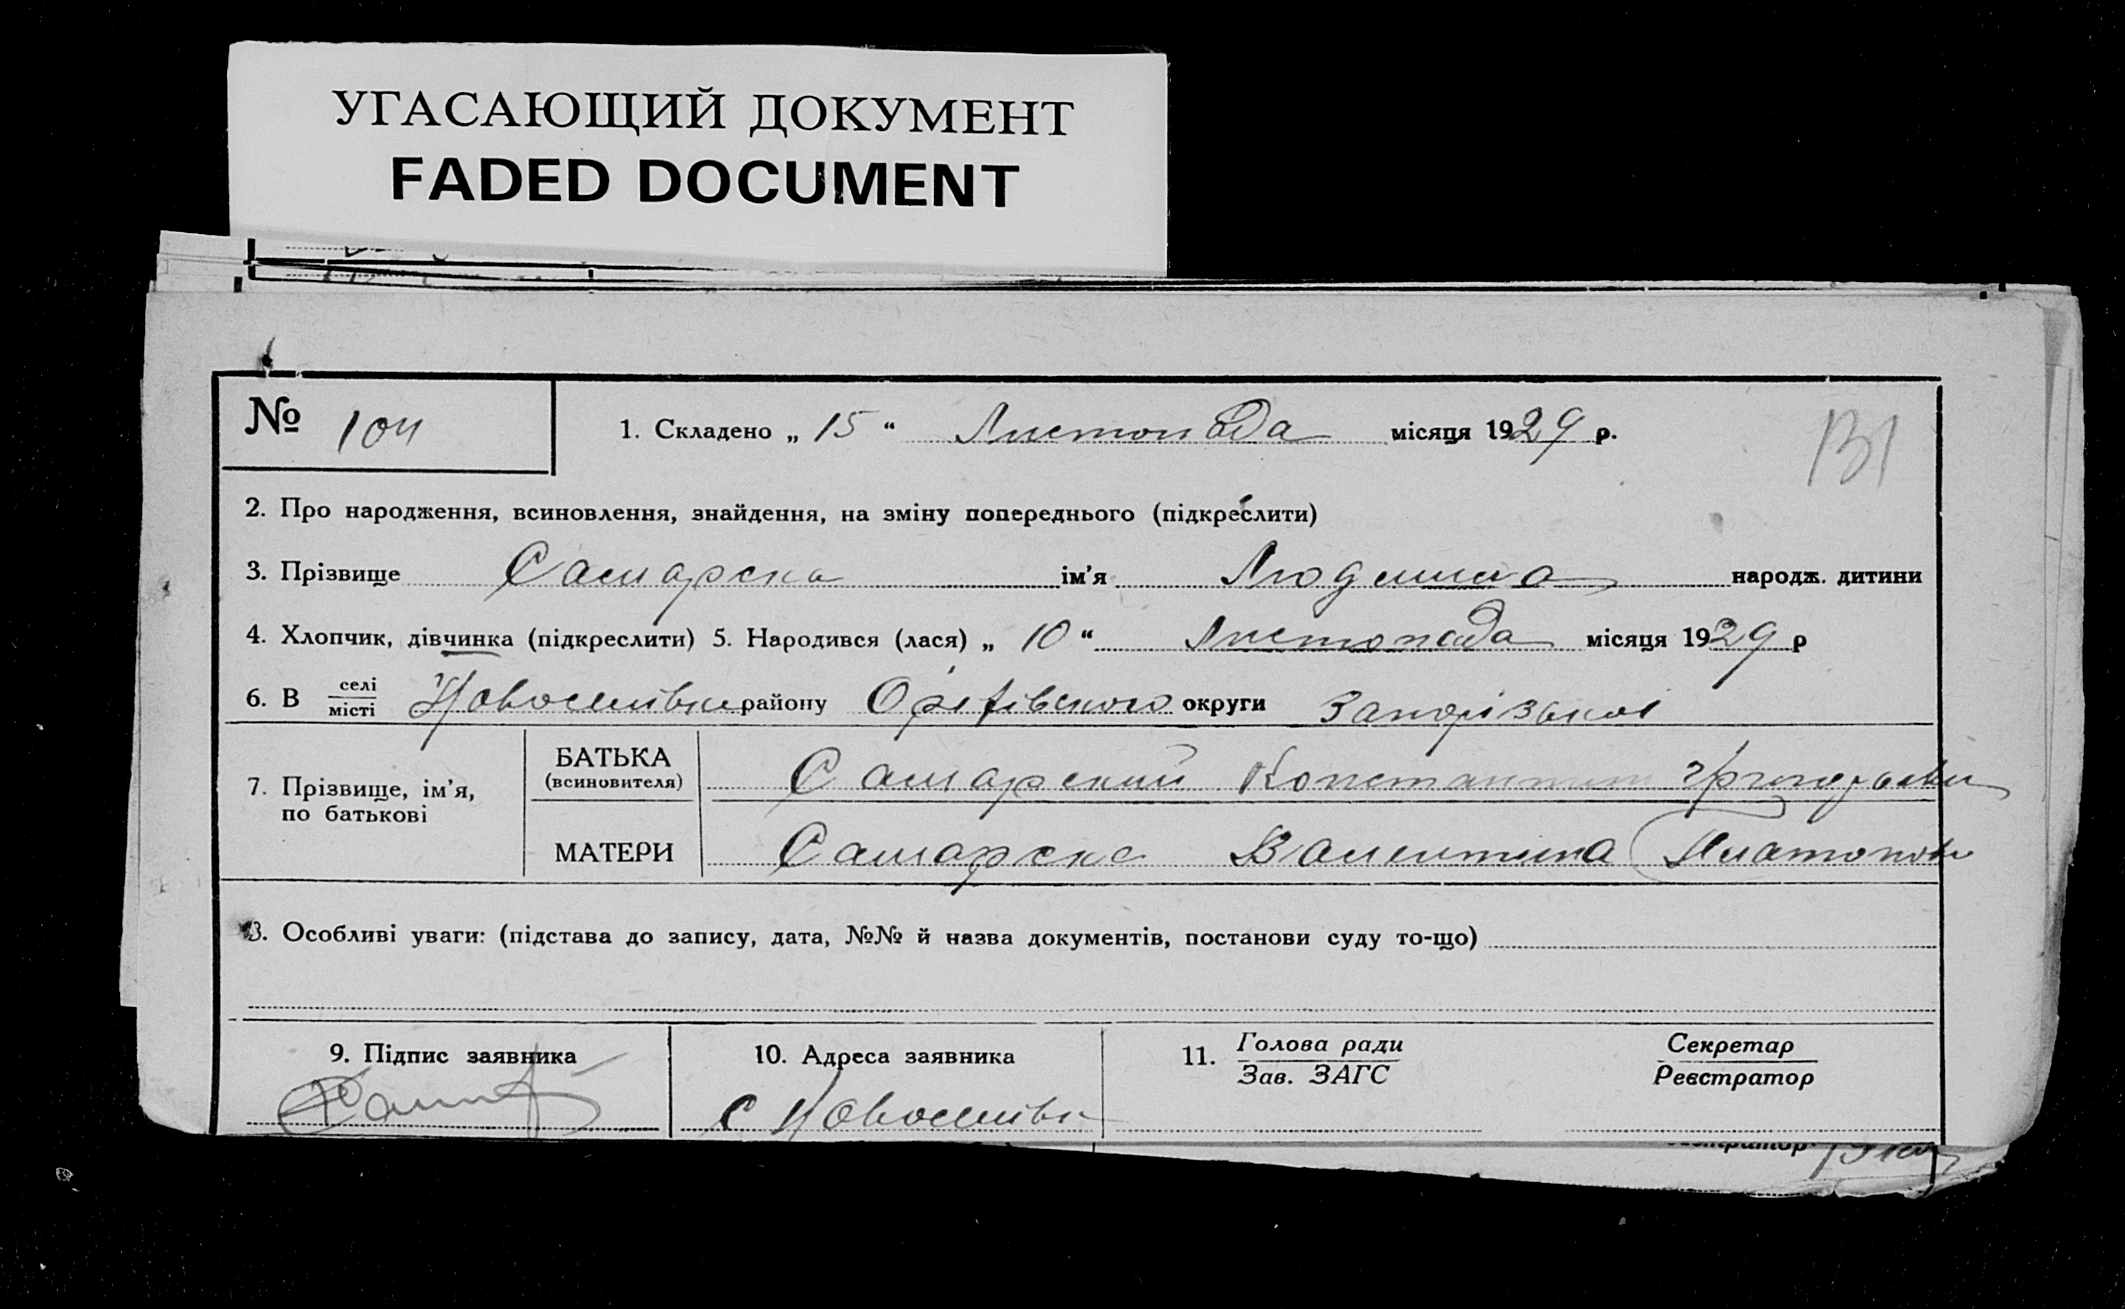 УГАСАЮЩИЙ ДОКУМЕНТ
FADED DOCUMENT
№ 104
1. Складено „ 15 “ Листопада місяця 1929 р.
131
2. Про народження, всиновлення, знайдення, на зміну попереднього (підкреслити)
3. Прізвище Самарска ім’я Людмила народж. дитини
4. Хлопчик, дівчинка (підкреслити) 5. Народився (лася) „ 10 “ Листопада місяця 1929 р
6. В селі місті Новоселівка району Оріхівського округи Запорізької
7. Прізвище, ім’я, по батькові
БАТЬКА (всиновителя) Самарский Константин
МАТЕРИ Самарска Валентина Платонов
8. Особливі уваги: (підстава до запису, дата, №№ й назва документів, постанови суду то-що)
9. Підпис заявника
10. Адреса заявника
11. Голова ради Зав. ЗАГС
Секретар Реєстратор
с Новоселівк